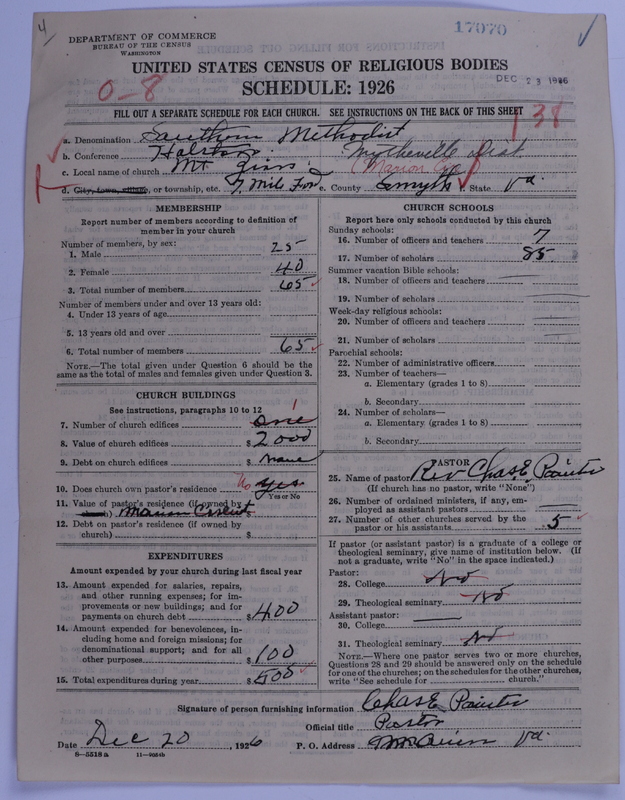 4
17070
DEPARTMENT OF COMMERCE
BUREAU OF THE CENSUS
WASHINGTON
UNITED STATES CENSUS OF RELIGIOUS BODIES
DEC 23 1926
SCHEDULE: 1926
0-8
FILL OUT A SEPARATE SCHEDULE FOR EACH CHURCH. SEE INSTRUCTIONS ON THE BACK OF THIS SHEET
138
a. Denomination Southern Methodist
b. Conference Holston Wytheville Dist
c. Local name of church Mt Marion
d. City, town, village, or township, etc. 7 Mile Ford e. County Smyth State Va.
MEMBERSHIP
Report number of members according to definition of
member in your church
Number of members, by sex:
1. Male 25
2. Female 40
3. Total number of members 65
Number of members under and over 13 years old:
4. Under 13 years of age
5. 13 years old and over
6. Total number of members 65
NOTE.—The total given under Question 6 should be the
same as the total of males and females given under Question 3.
CHURCH BUILDINGS
See instructions, paragraphs 10 to 12
7. Number of church edifices one 1
8. Value of church edifices $ 2000
9. Debt on church edifices $ none
10. Does church own pastor's residence No yes
Yes or No
11. Value of pastor's residence (if owned by
church) Marion Circuit
12. Debt on pastor's residence (if owned by
church) $
EXPENDITURES
Amount expended by your church during last fiscal year
13. Amount expended for salaries, repairs,
and other running expenses; for im-
provements or new buildings; and for
payments on church debt $ 400
14. Amount expended for benevolences, in-
cluding home and foreign missions; for
denominational support; and for all
other purposes $ 100
15. Total expenditures during year $ 500
CHURCH SCHOOLS
Report here only schools conducted by this church
Sunday schools:
16. Number of officers and teachers 7
17. Number of scholars 85
Summer vacation Bible schools:
18. Number of officers and teachers
19. Number of scholars
Week-day religious schools:
20. Number of officers and teachers
21. Number of scholars
Parochial schools:
22. Number of administrative officers
23. Number of teachers—
a. Elementary (grades 1 to 8)
b. Secondary
24. Number of scholars—
a. Elementary (grades 1 to 8)
b. Secondary
PASTOR
25. Name of pastor Rev Chas E. Painter
(If church has no pastor, write "None")
26. Number of ordained ministers, if any, em-
ployed as assistant pastors
27. Number of other churches served by the
pastor or his assistants 5
If pastor (or assistant pastor) is a graduate of a college or
theological seminary, give name of institution below. (If
not a graduate, write "No" in the space indicated.)
Pastor:
28. College No
29. Theological seminary No
Assistant pastor:
30. College
31. Theological seminary No
NOTE.—Where one pastor serves two or more churches,
Questions 28 and 29 should be answered only on the schedule
for one of the churches; on the schedules for the other churches,
write "See schedule for church."
Signature of person furnishing information Chas E Painter
Official title Pastor
Date Dec 20, 1926 P. O. Address Va.
8—5518a 11—9054b